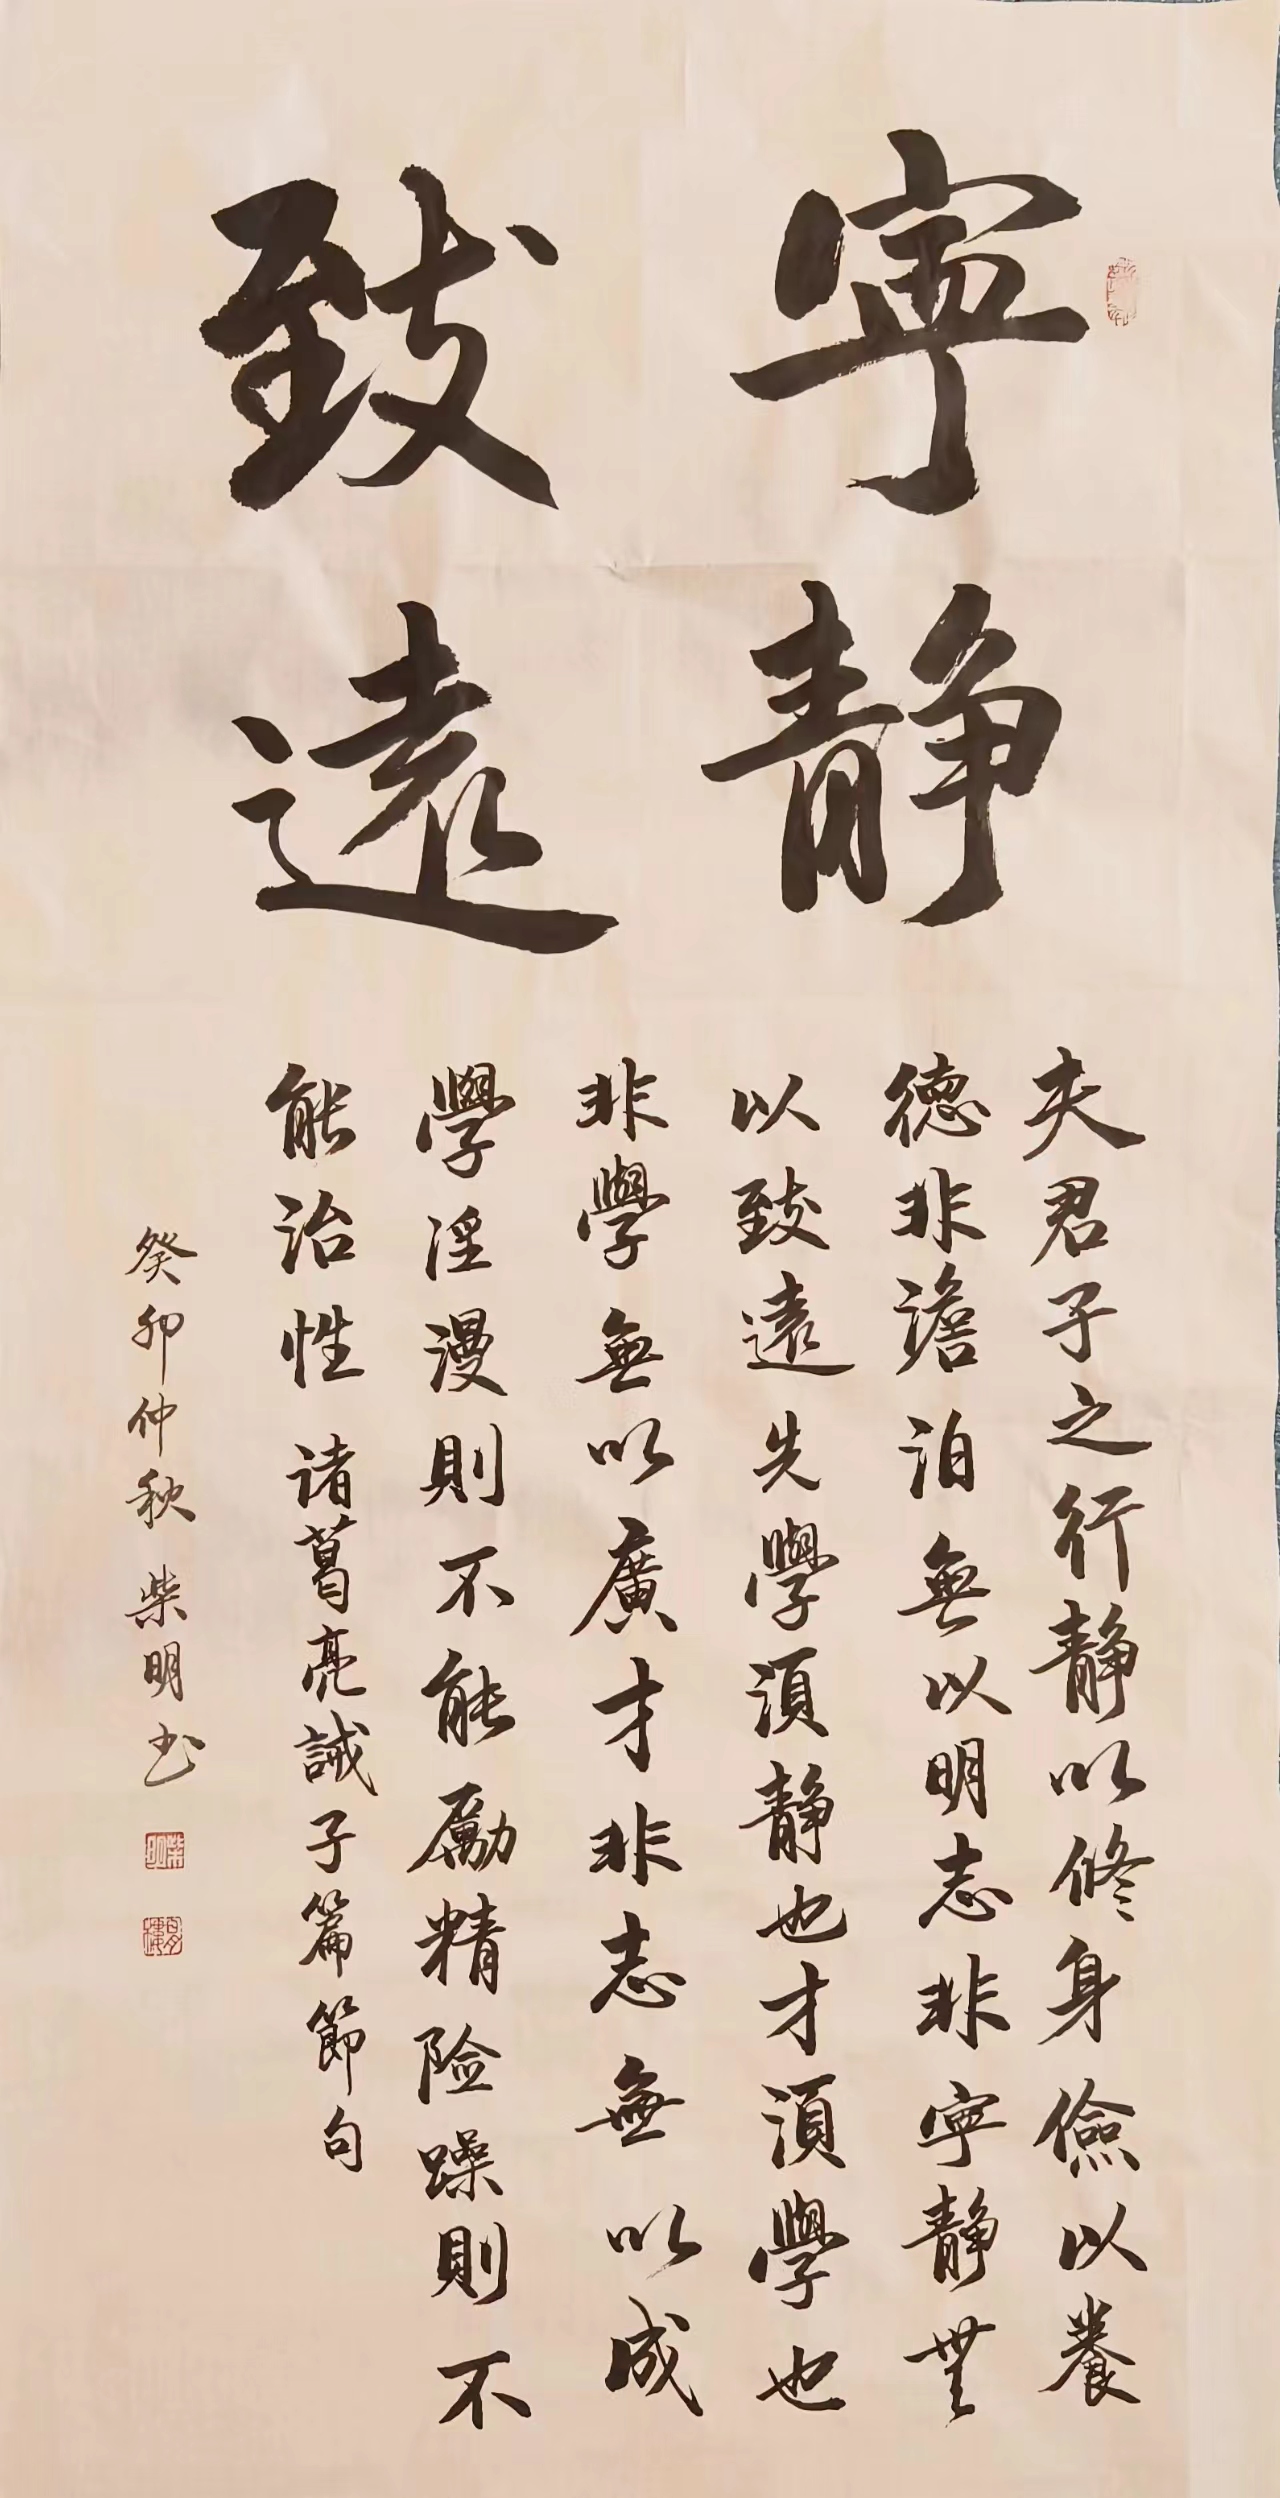 寧靜
致遠
夫君子之行静以修身儉以養
德非澹泊無以明志非寧静無
以致遠先學須静也才須學也
非學無以廣才非志無以成
學淫漫則不能勵精险躁則不
能治性诸葛亮誡子篇節句
癸卯仲秋柴明书
柴明